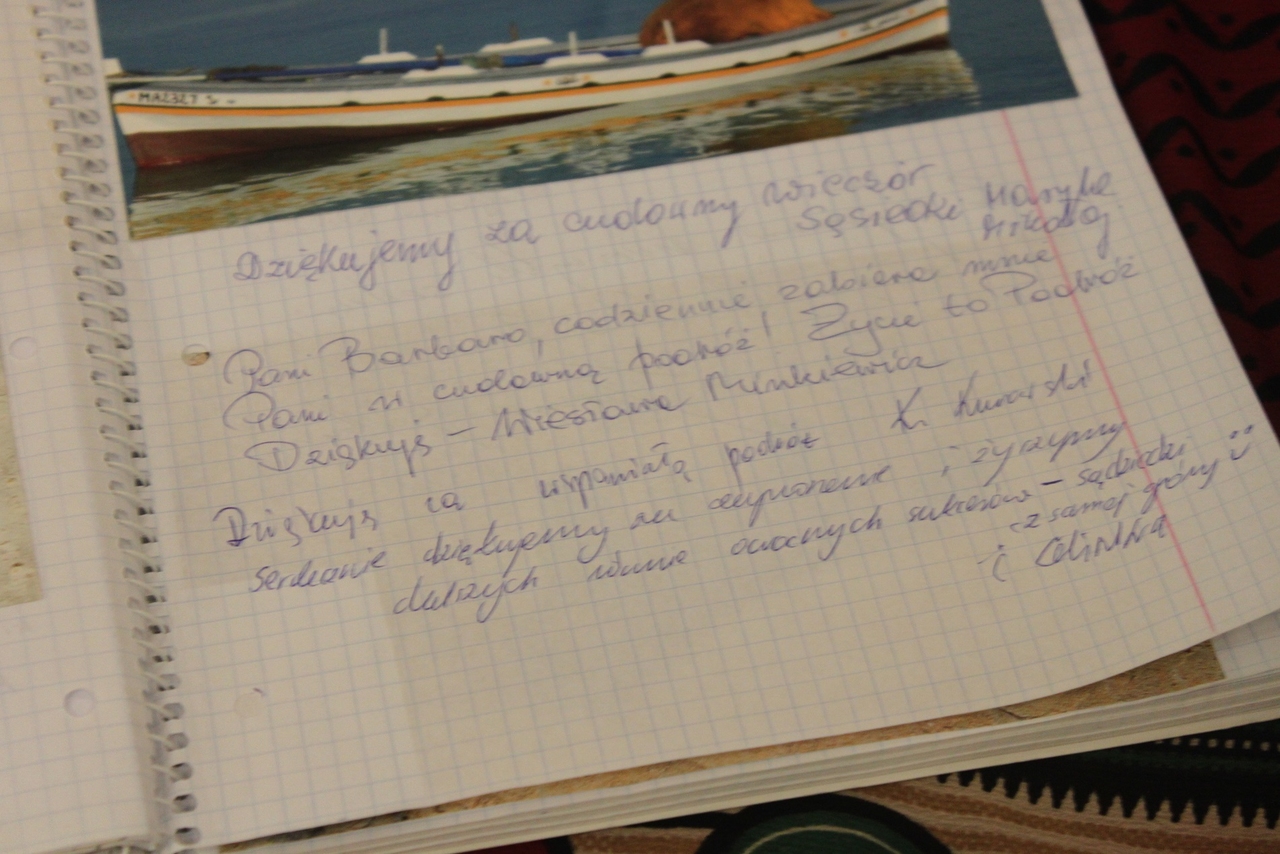 MA2327 5
Dziękujemy za cudowny wieczór
Sąsiadki Marylka
Mikołaj
Pani Barbaro, codziennie zabiera mnie
Pani w cudowną podróż! Życie to Podróż
Dziękuję - Wiesława Minkiewicz
Dziękuję za wspaniałą podróż K. Kurarski
Serdecznie dziękujemy za zaproszenie i życzymy
dalszych równie owocnych sukcesów - sąsiadki
z samej góry
i